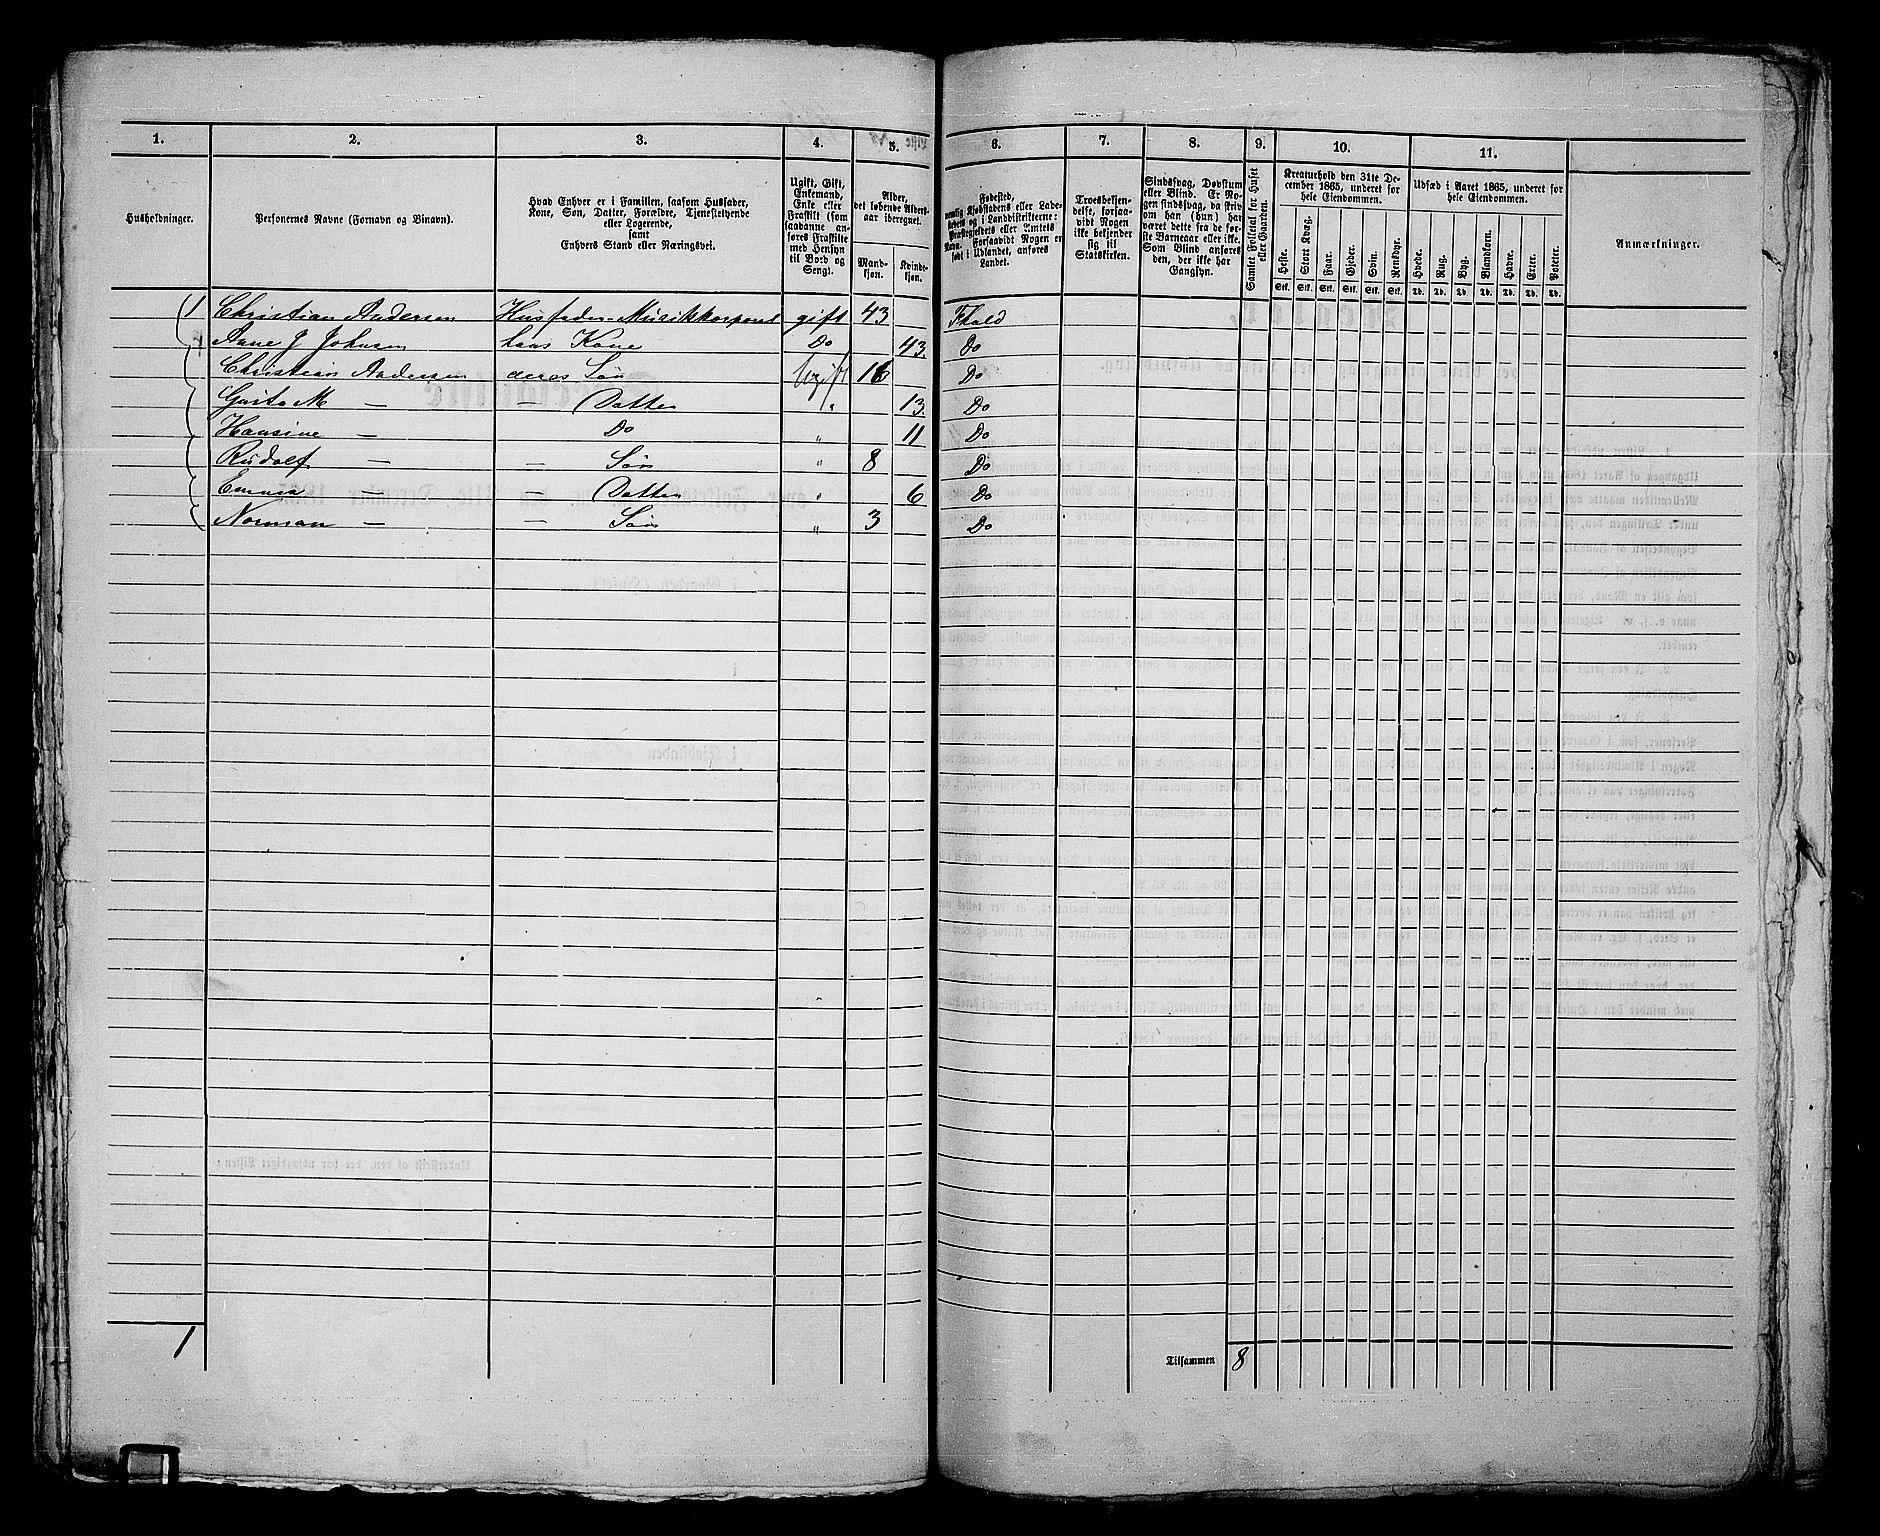 1. 2. 3. 4. 5. 6. 7. 8. 9. 10. 11.
Husholdninger.
Personernes Navne (Fornavn og Binavn).
Hvad Enhver er i Familien, saasom Husfader,
Kone, Søn, Datter, Forældre, Tjenestetyende
eller Logerende,
samt
Enhvers Stand eller Næringsvei.
Ugift, Gift,
Enkemand,
Enke eller
Fraskilt (som
saadanne an-
føres Fraskilte
med Hensyn
til Bord og
Seng).
Alder,
det løbende Alders-
aar iberegnet.
Mand-
kjøn.
Kvinde-
kjøn.
Fødested,
nemlig Kjøbstadens eller Lade-
stedets og i Landdistrikterne:
Præstegjeldets eller Amtets
Navn. Forsaavidt Nogen er
født i Udlandet, anføres
Landet.
Troesbekjen-
delse, forsaa-
vidt Nogen
ikke bekjender
sig til
Statskirken.
Sindssvag, Døvstum
eller Blind. Er No-
gen sindssvag, da skriv
om han (hun) har
været dette fra de før-
ste Barneaar eller ikke.
Som Blind anføres
den, der ikke har
Gangsyn.
Samlet Folketal for Huset
eller Gaarden.
Kreaturhold den 31te De-
cember 1865, underet for
hele Eiendommen.
Heste. Stort Kvæg. Faar. Gjeder. Sviin. Rensdyr.
Stk. Stk. Stk. Stk. Stk. Stk.
Udsæd i Aaret 1865, underet for
hele Eiendommen.
Hvede. Rug. Byg. Blandkorn. Havre. Erter. Poteter.
Td. Td. Td. Td. Td. Td. Td.
Anmærkninger.
1 Christian Andersen Husfader Musikkorporal gift 43 Fhald
Anne J Johnsen hans Kone Do 43. Do
Christian Andersen deres Søn Ugift 16 Do
M — — Datter " 13. Do
Hansine — Do " 11 Do
Rudolf — — Søn " 8 Do
Emma — — Datter " 6 Do
Norman — — Søn " 3 Do
1
Tilsammen 8